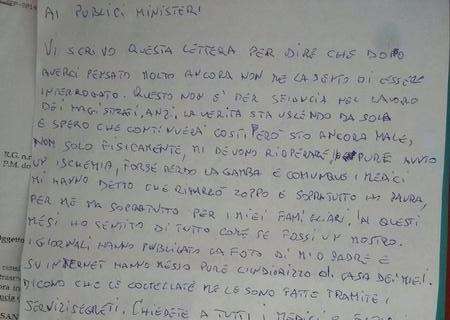 AI PUBLICI MINISTERI
VI SCRIVO QUESTA LETTERA PER DIRE CHE DOPO
AVERCI PENSATO MOLTO ANCORA NON ME LA SENTO DI ESSERE
INTERROGATO. QUESTO NON E' PER SFIDUCIA NEL LAVORO
DEI MAGISTRATI, ANZI. LA VERITÀ STA USCENDO DA SOLA
E SPERO CHE CONTINUERÀ COSÌ. PERÒ STO ANCORA MALE,
NON SOLO FISICAMENTE, MI DEVONO RIOPERARE, PURE AVUTO
UN ISCHEMIA, FORSE PERDO LA GAMBA E COMUNQUE I MEDICI
MI HANNO DETTO CHE RIMARRÒ ZOPPO E SOPRATUTTO HO PAURA,
PER ME MA SOPRATUTTO PER I MIEI FAMIGLIARI. IN QUESTI
MESI HO SENTITO DI TUTTO COME SE FOSSI UN MOSTRO.
I GIORNALI HANNO PUBLICATO LA FOTO DI MIO PADRE E
SU INTERNET HANNO MESSO PURE L'INDIRIZZO DI CASA DEI MIEI.
DICONO CHE LE COLTELLATE ME LE SONO FATTE TRAMITE I
SERVIZI SEGRETI. CHIEDETE A TUTTI I MEDICI E
R.G. n.
P.M. do
Oggetto
SAN